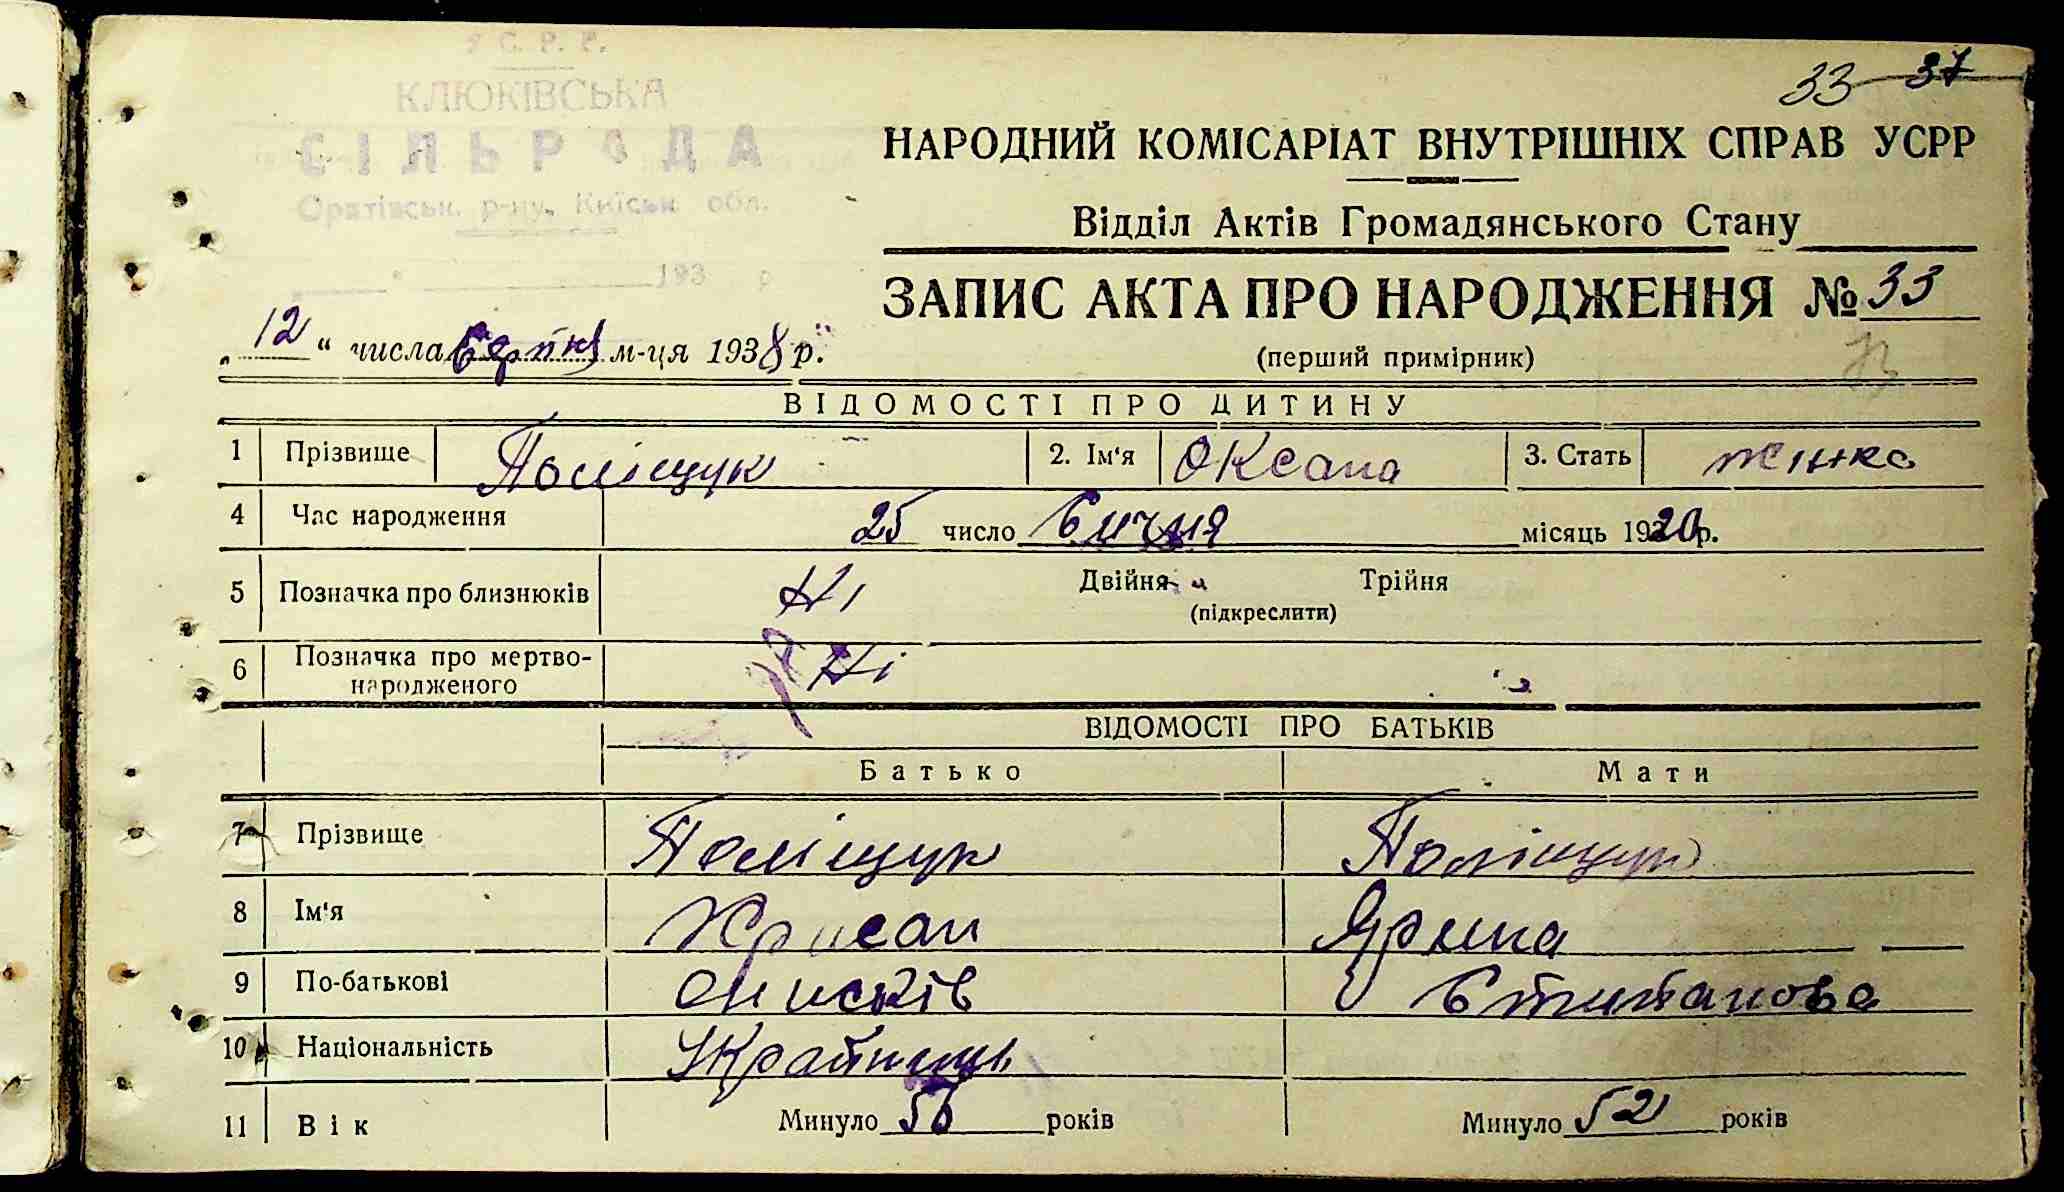 У С. Р. Р.
КЛЮКІВСЬКА
СІЛЬРАДА
Оратівськ. р-ну, Київськ обл.
193 р
33 37
НАРОДНИЙ КОМІСАРІАТ ВНУТРІШНІХ СПРАВ УСРР
Відділ Актів Громадянського Стану
ЗАПИС АКТА ПРО НАРОДЖЕННЯ № 33
(перший примірник)
„12“ числа Серпня м-ця 1938 р.
ВІДОМОСТІ ПРО ДИТИНУ
1 Прізвище Поліщук 2. Ім'я Оксана 3. Стать жінка
4 Час народження 25 число Січня місяць 1920 р.
5 Позначка про близнюків Ні Двійня Трійня
(підкреслити)
6 Позначка про мертво-
народженого Ні
ВІДОМОСТІ ПРО БАТЬКІВ
Батько Мати
7 Прізвище Поліщук Поліщук
8 Ім'я Хрисан Ярина
9 По-батькові Онисків
10 Національність Українець
11 Вік Минуло 56 років Минуло 52 років